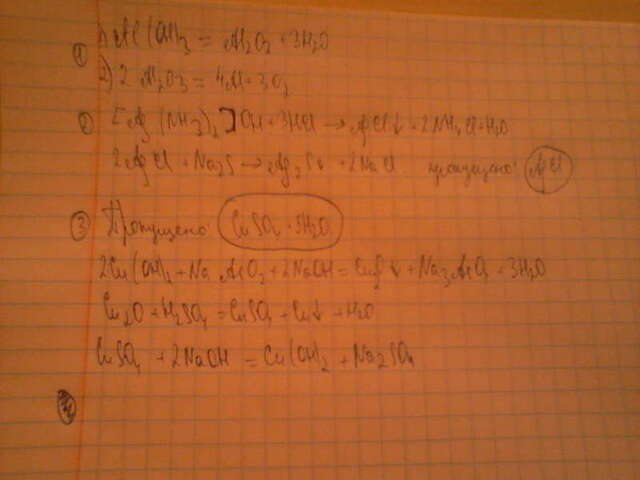 ① 1) Al(OH)3 = Al2O3 + 3H2O
2) 2 Al2O3 = 4Al + 3O2
② [Ag(NH3)2]OH + 3HCl → AgCl↓ + 2NH4Cl + H2O
2AgCl + Na2S → Ag2S↓ + 2NaCl пропущено: AgCl
③ Пропущено: CuSO4 · 5H2O
2Cu(OH)2 + Na AsO2 + 2NaOH = Cu2O↓ + Na3AsO4 + 3H2O
Cu2O + H2SO4 = CuSO4 + Cu↓ + H2O
CuSO4 + 2NaOH = Cu(OH)2 + Na2SO4